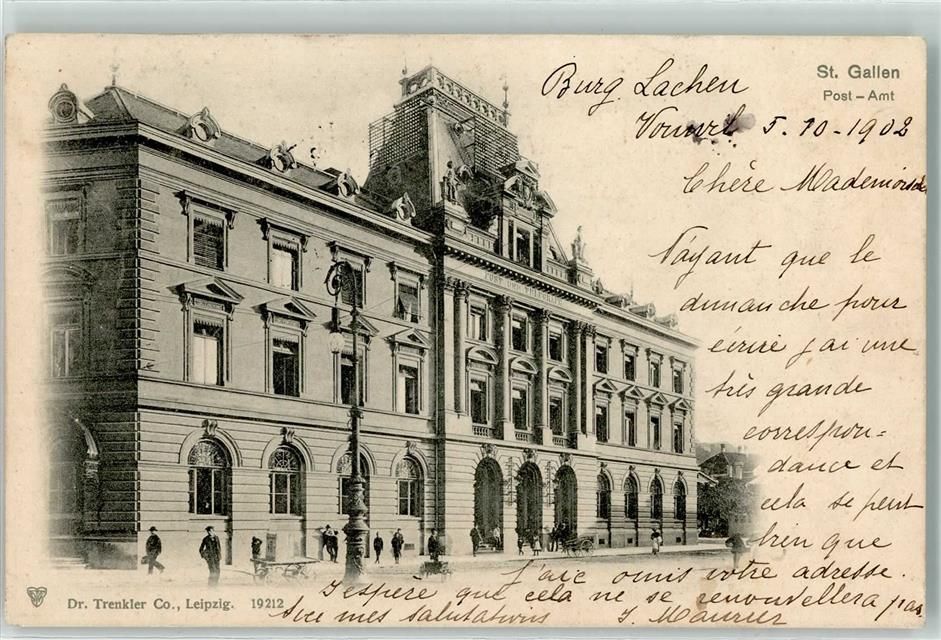 St. Gallen
Post-Amt
Burg Lachen
5.10-1902
Chère Mademoiselle
N'ayant que le
dimanche pour
écrire j'ai une
très grande
correspon=
dance et
cela se peut
bien que
j'aie omis votre adresse.
J'espère que cela ne se renouvellera pas.
Avec mes salutations J. Maurier
Dr. Trenkler Co., Leipzig. 19212